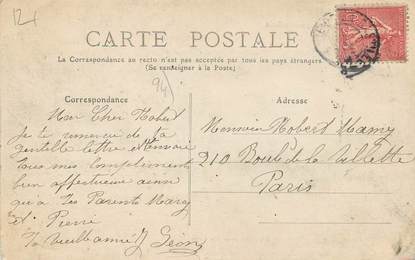 CARTE POSTALE
La Correspondance au recto n'est pas acceptée par tous les pays étrangers
(Se renseigner à la Poste)
Correspondance
Adresse
Mon Cher Robert
Je te remercie de ta
gentille lettre et t'envoie
tous mes compliments
bien affectueux ainsi
qu'à tes Parents Marcy
et Pierre
Ta vieille amie
Monsieur Robert Mamy
210 Boul. de la Villette
Paris